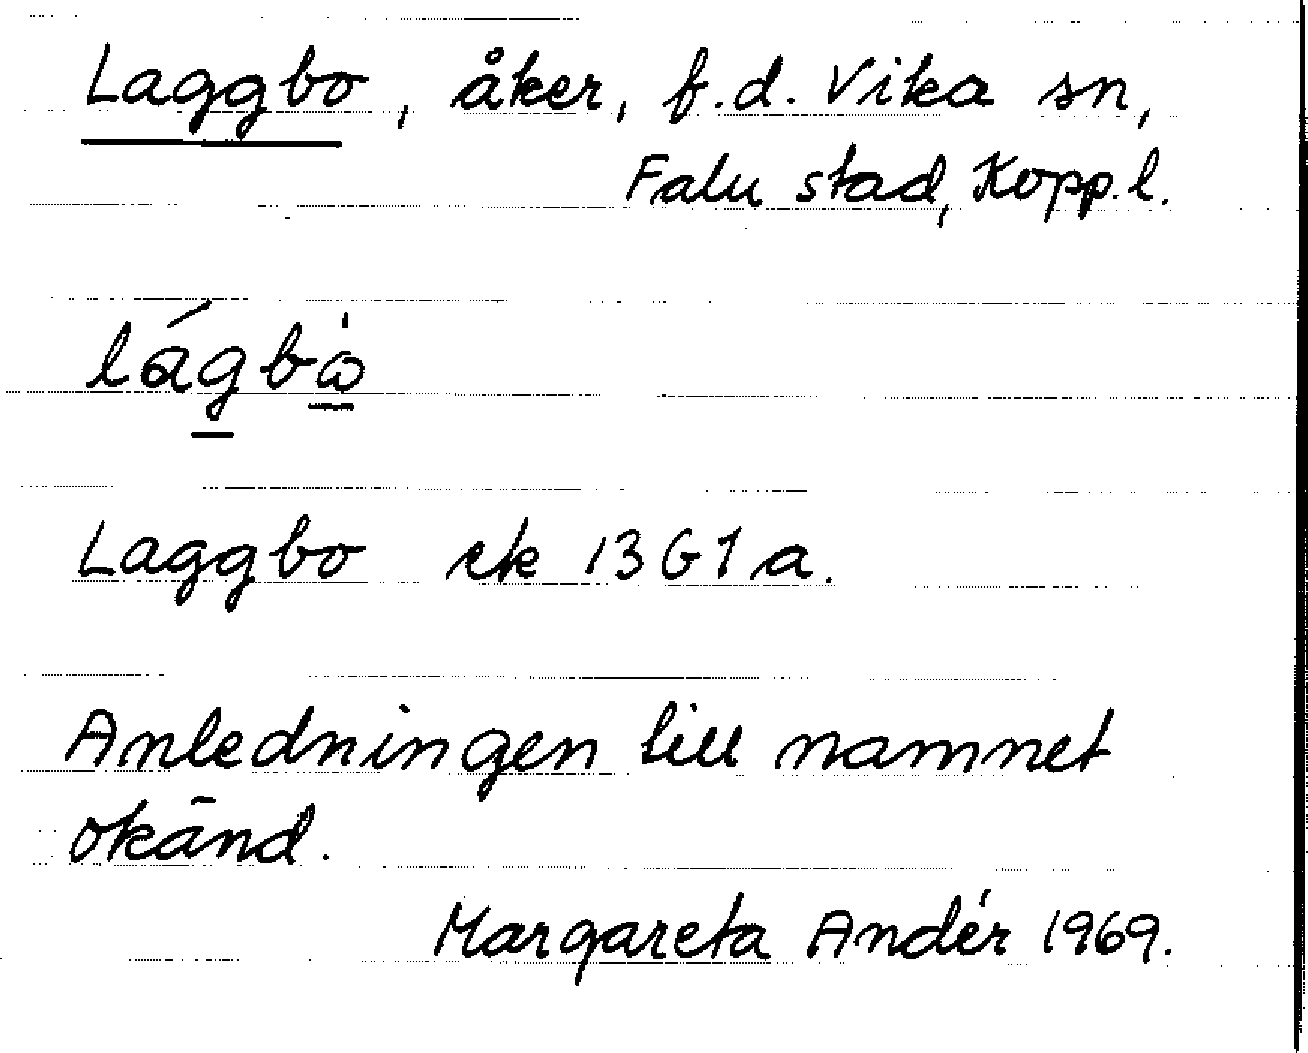 Laggbo, åker, f.d. Vika sn,
Falu stad, Kopp.l.
lágbò
Laggbo ek 13G1a.
Anledningen till namnet
okänd.
Margareta Andér 1969.